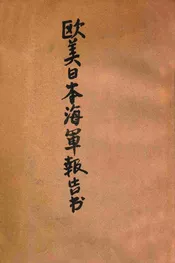 欧美日本海軍報告书